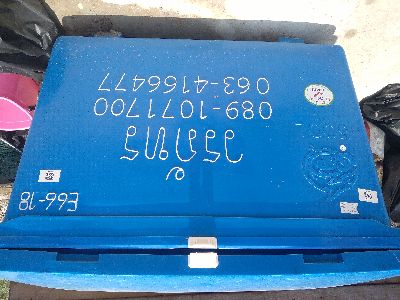 E66-18
วรภัทร
089-1071700
063-4166477